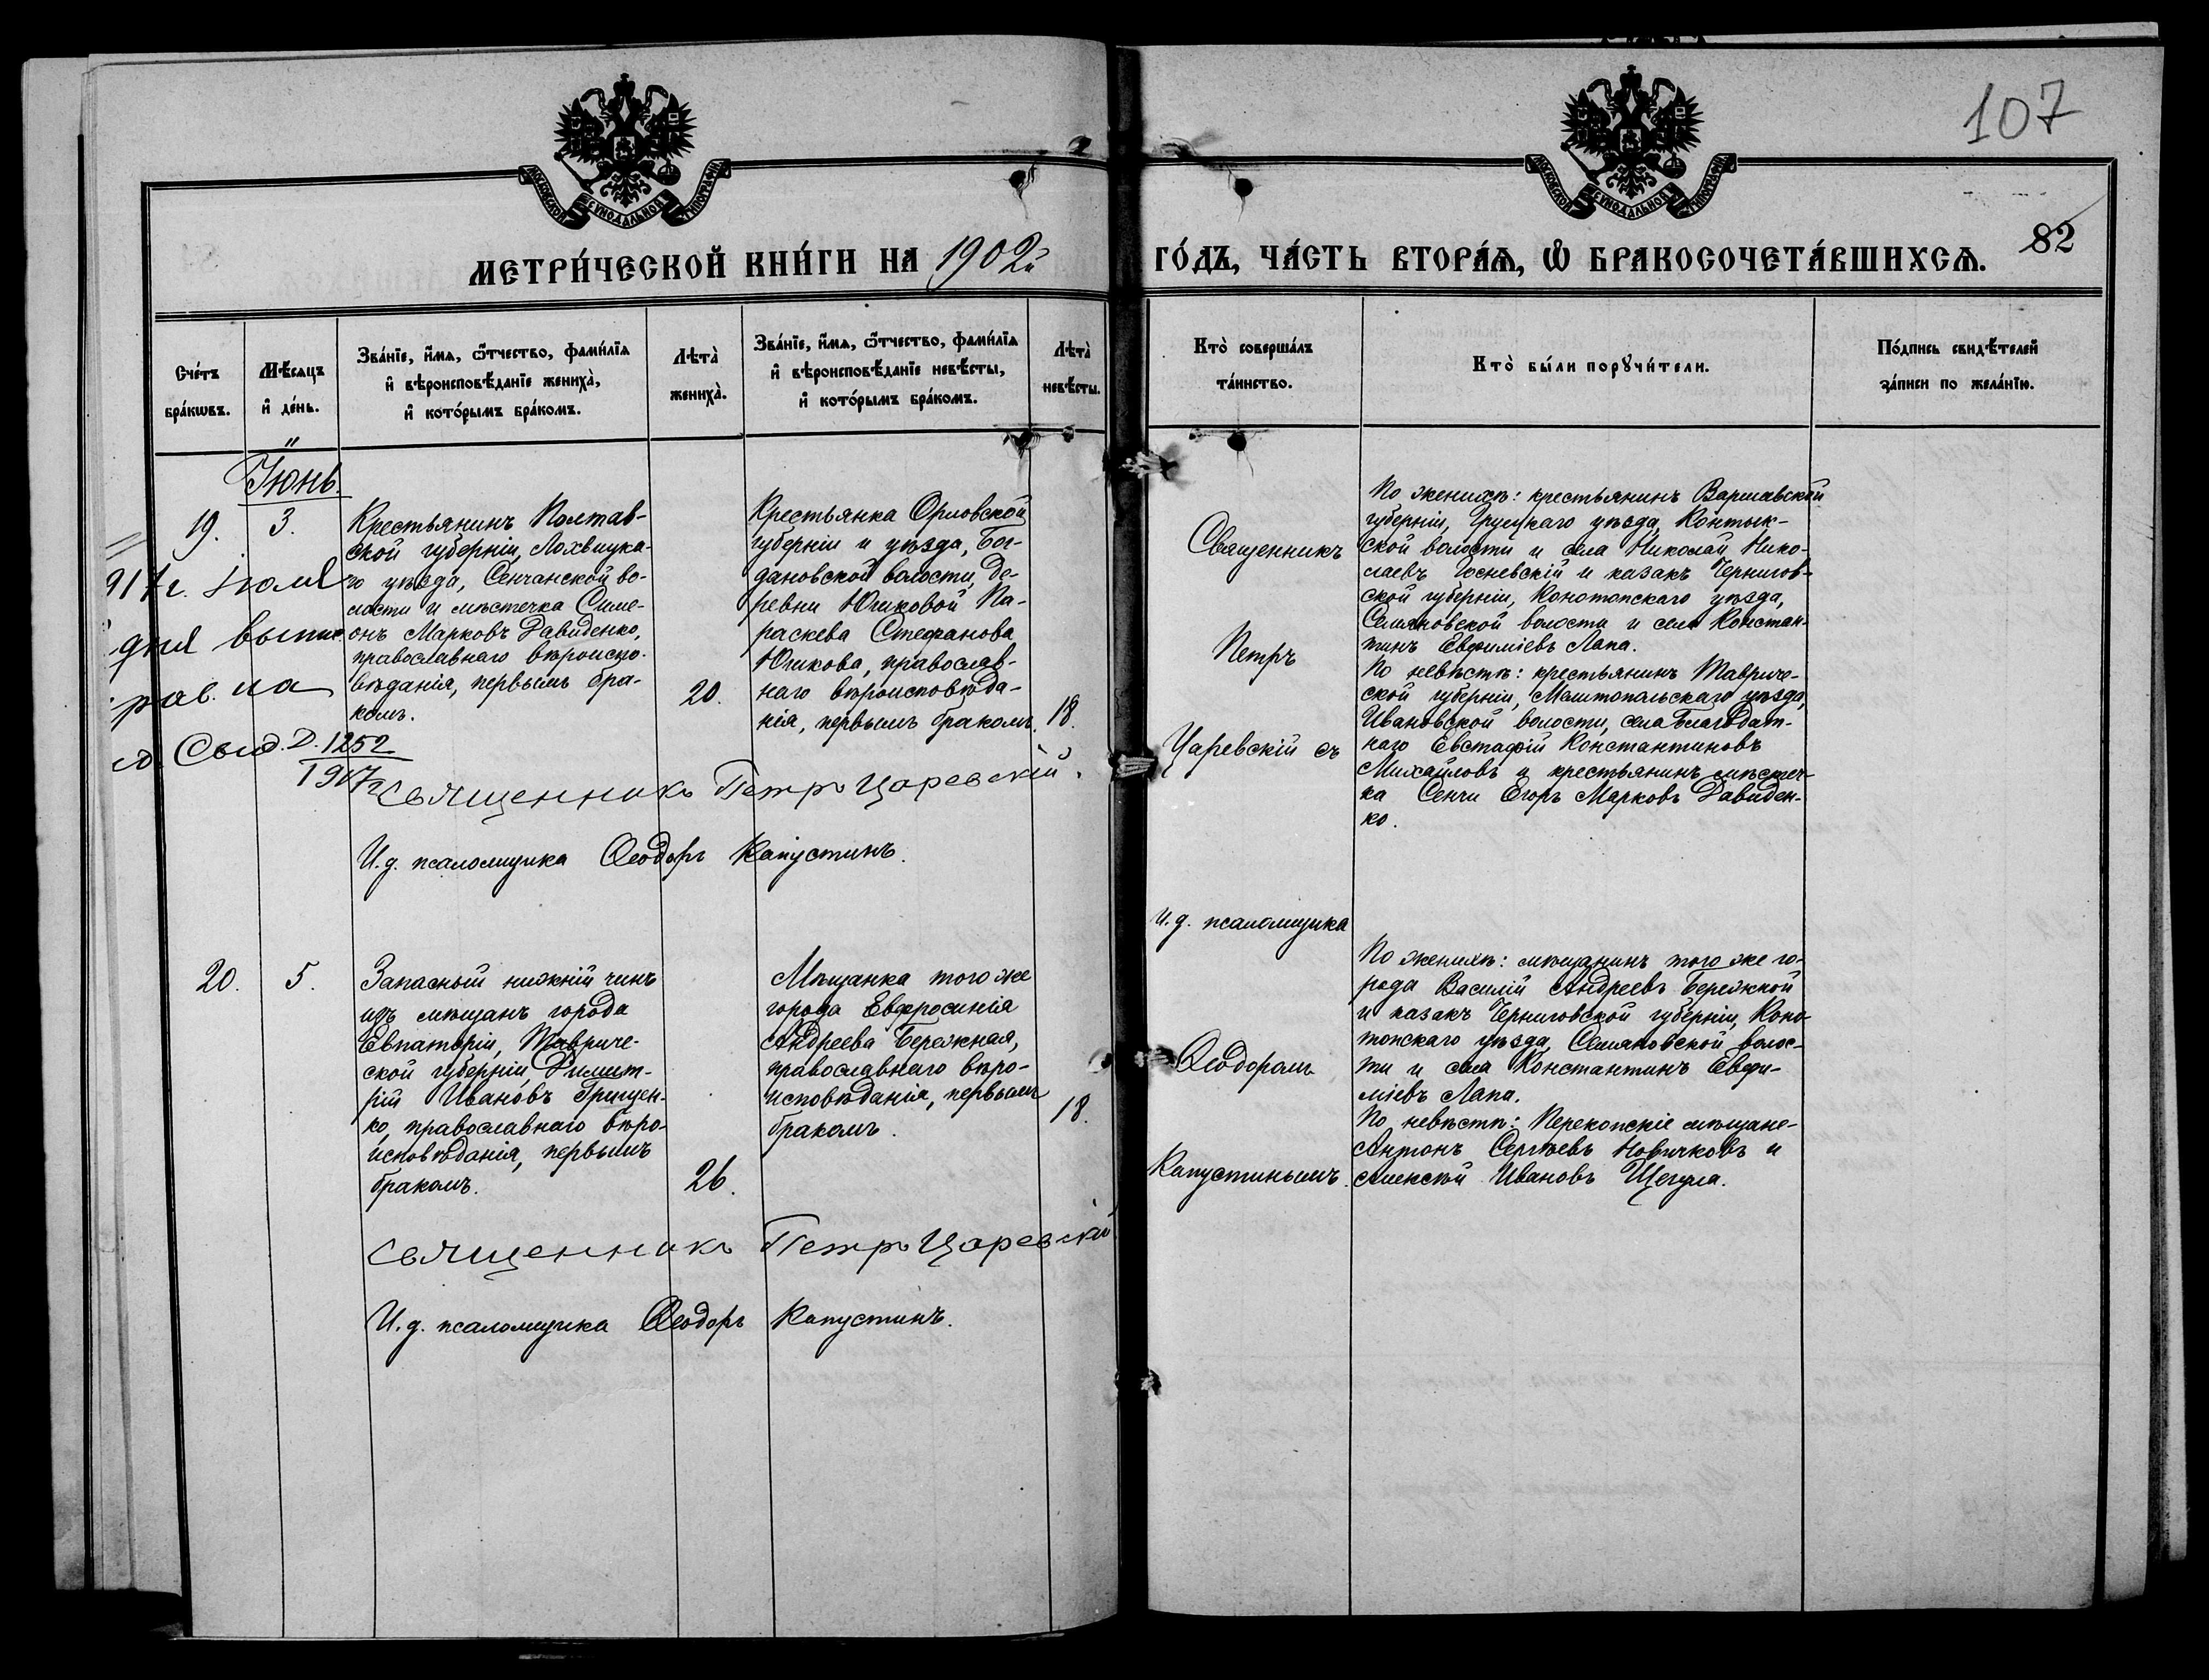 107
МОСКОВСКОЙ СѴНОДАЛЬНОЙ ТИПОГРАФІИ
МОСКОВСКОЙ СѴНОДАЛЬНОЙ ТИПОГРАФІИ
82
МЕТРИ́ЧЕСКОЙ КНИ́ГИ НА 1902й
ГО́ДЪ, ЧА́СТЬ ВТОРА́Ѧ, Ѽ БРАКОСОЧЕТА́ВШИХСѦ.
Сче́тъ
бра́кѡвъ.
Мѣ́сяцъ
и҆ де́нь.
Зва́нїе, и҆́мѧ, ѻ҆́тчество, фами́лїѧ
и҆ вѣроисповѣ́данїе жениха̀,
и҆ кото́рымъ бра́комъ.
Лѣта̀
жениха̀.
Зва́нїе, и҆́мѧ, ѻ҆́тчество, фами́лїѧ
и҆ вѣроисповѣ́данїе невѣ́сты,
и҆ кото́рымъ бра́комъ.
Лѣта̀
невѣ́сты.
Кто̀ соверша́лъ
та́инство.
Кто̀ бы́ли порꙋчи́тели.
По́дпись свидѣ́телей
за́писи по жела́нїю.
Іюнь.
19.
3.
Крестьянинъ Полтав-
ской губерніи, Лохвицка-
го уѣзда, Сенчанской во-
лости и мѣстечка Симе-
онъ Марковъ Давиденко,
православнаго вѣроиспо-
вѣданія, первымъ бра-
комъ.
20.
Крестьянка Орловской
губерніи и уѣзда, Бог-
дановской волости, де-
ревни Юшковой Па-
раскева Стефанова
Юшкова, православ-
наго вѣроисповѣда-
нія, первымъ бракомъ.
18.
917г. Іюля
дня
на
Д. 1252
1917г
Священникъ Петръ Царевскій.
И.д. псаломщика Ѳеодоръ Капустинъ.
Священникъ
Петръ
Царевскій съ
и.д. псаломщика
Ѳеодоромъ
Капустинымъ.
По женихѣ: крестьянинъ Варшавской
губерніи, Груецкаго уѣзда, Контык-
ской волости и села Николай Нико-
лаевъ Госневскій и казакъ Чернигов-
ской губерніи, Конотопскаго уѣзда,
Семяновской волости и села Констан-
тинъ Евфиміевъ Лапа.
По невѣстѣ: крестьянинъ Тавриче-
ской губерніи, Мелитопольскаго уѣзда,
Ивановской волости, села Благодат-
наго Евстафій Константиновъ
Михайловъ и крестьянинъ мѣстеч-
ка Сенчи Егоръ Марковъ Давиден-
ко.
20.
5.
Запасный нижній чинъ
изъ мѣщанъ города
Евпаторіи, Тавриче-
ской губерніи, Димит-
рій Ивановъ Грищен-
ко, православнаго вѣро-
исповѣданія, первымъ
бракомъ.
26.
Мѣщанка того же
города Евфросинія
Андреева Бережная,
православнаго вѣро-
исповѣданія, первымъ
бракомъ.
18.
По женихѣ: мѣщанинъ того же го-
рода Василій Андреевъ Бережной
и казакъ Черниговской губерніи, Коно-
топскаго уѣзда, Семяновской волос-
ти и села Константинъ Евфи-
міевъ Лапа.
По невѣстѣ: Перекопскіе мѣщане-
Антонъ Сергѣевъ Новичковъ и
Алексѣй Ивановъ Щегула.
Священникъ Петръ Царевскій
И.д. псаломщика Ѳеодоръ Капустинъ.